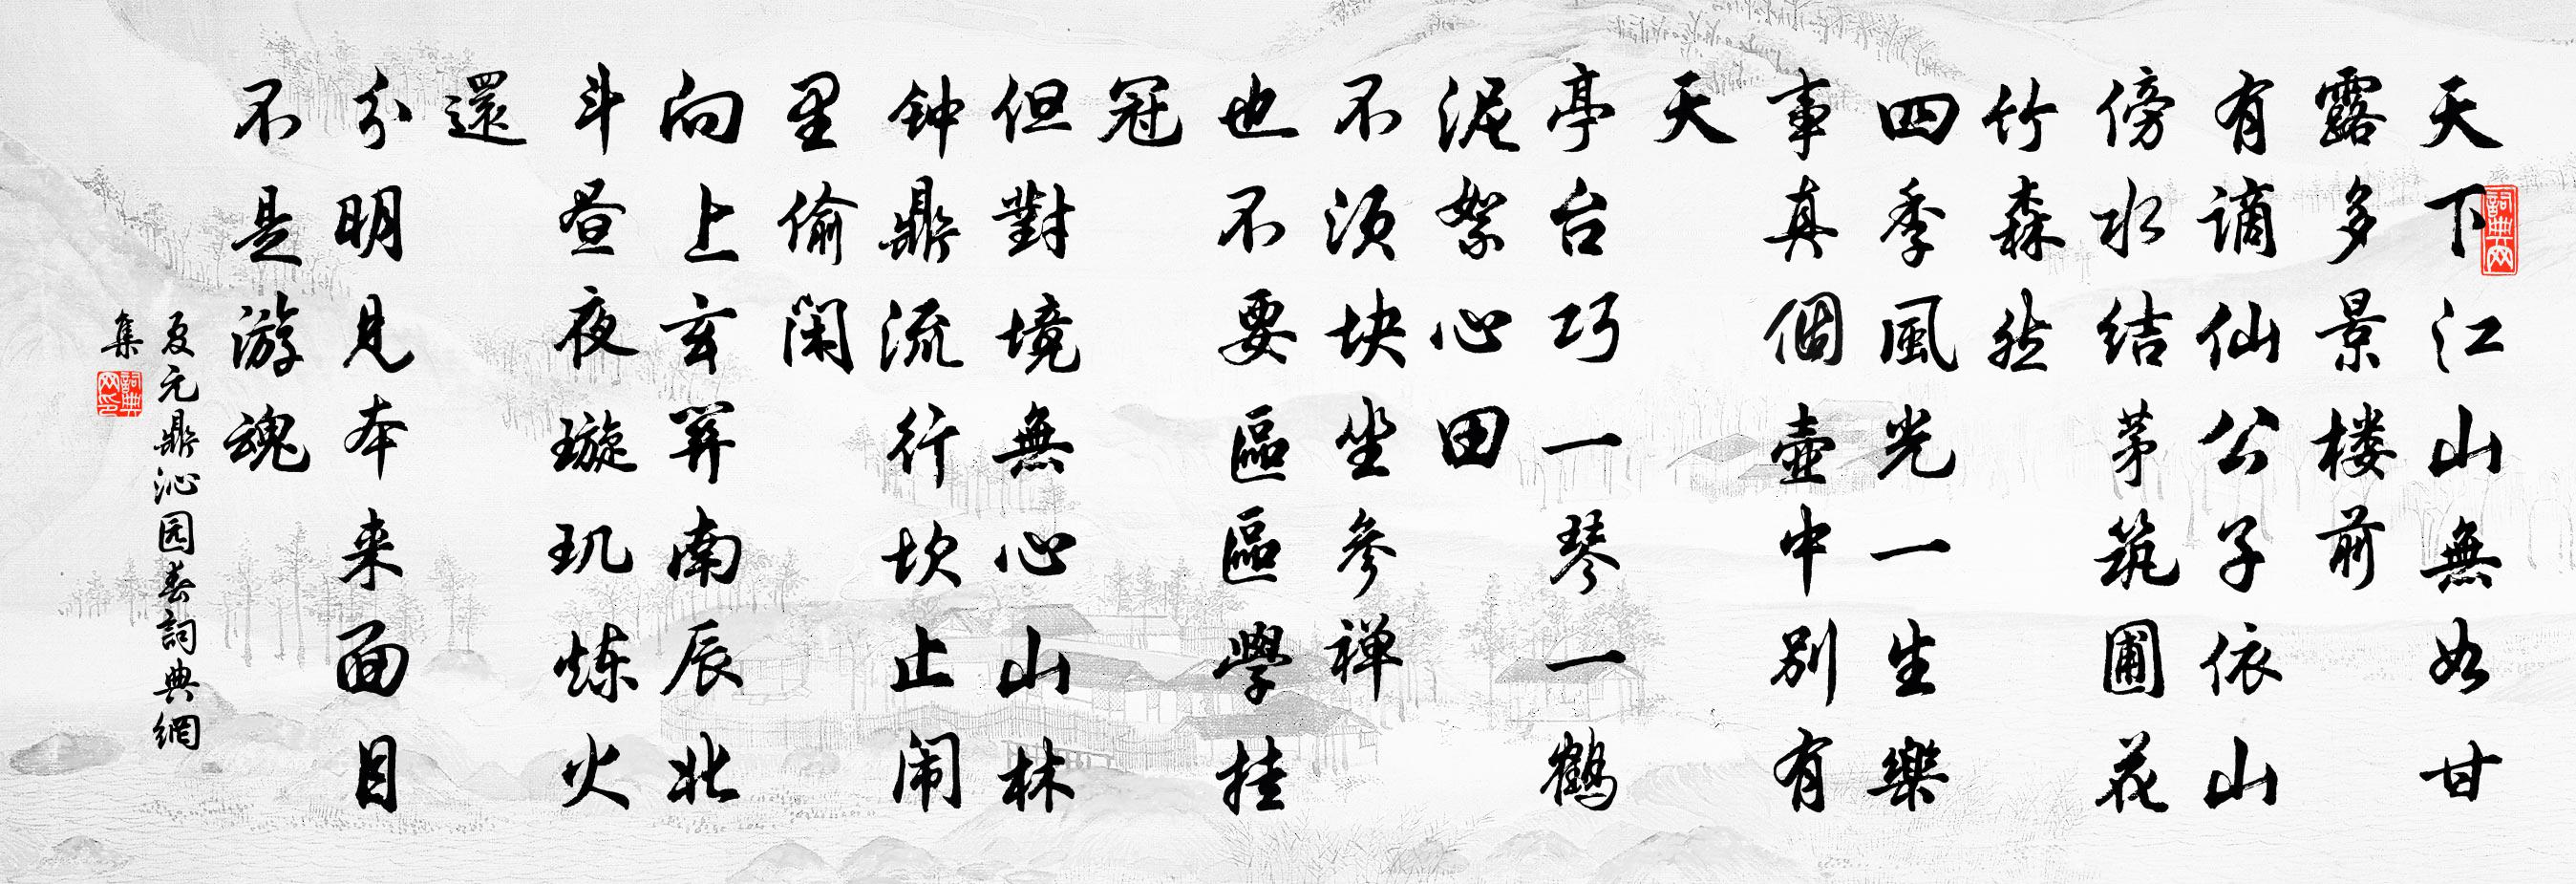 天下江山無如甘
露多景楼前
有谪仙公子依山
傍水结茅筑圃花
竹森然
四季風光一生樂
事真個壺中别有
天
亭台巧一琴一鶴
泥絮心田
不须块坐參禅
也不要區區學挂
冠
但對境無心山林
钟鼎流行坎止闹
里偷闲
向上玄關南辰北
斗昼夜璇玑炼火
還
分明見本来面目
不是游魂
夏元鼎沁园春詞典網
集
詞典网
詞典网印